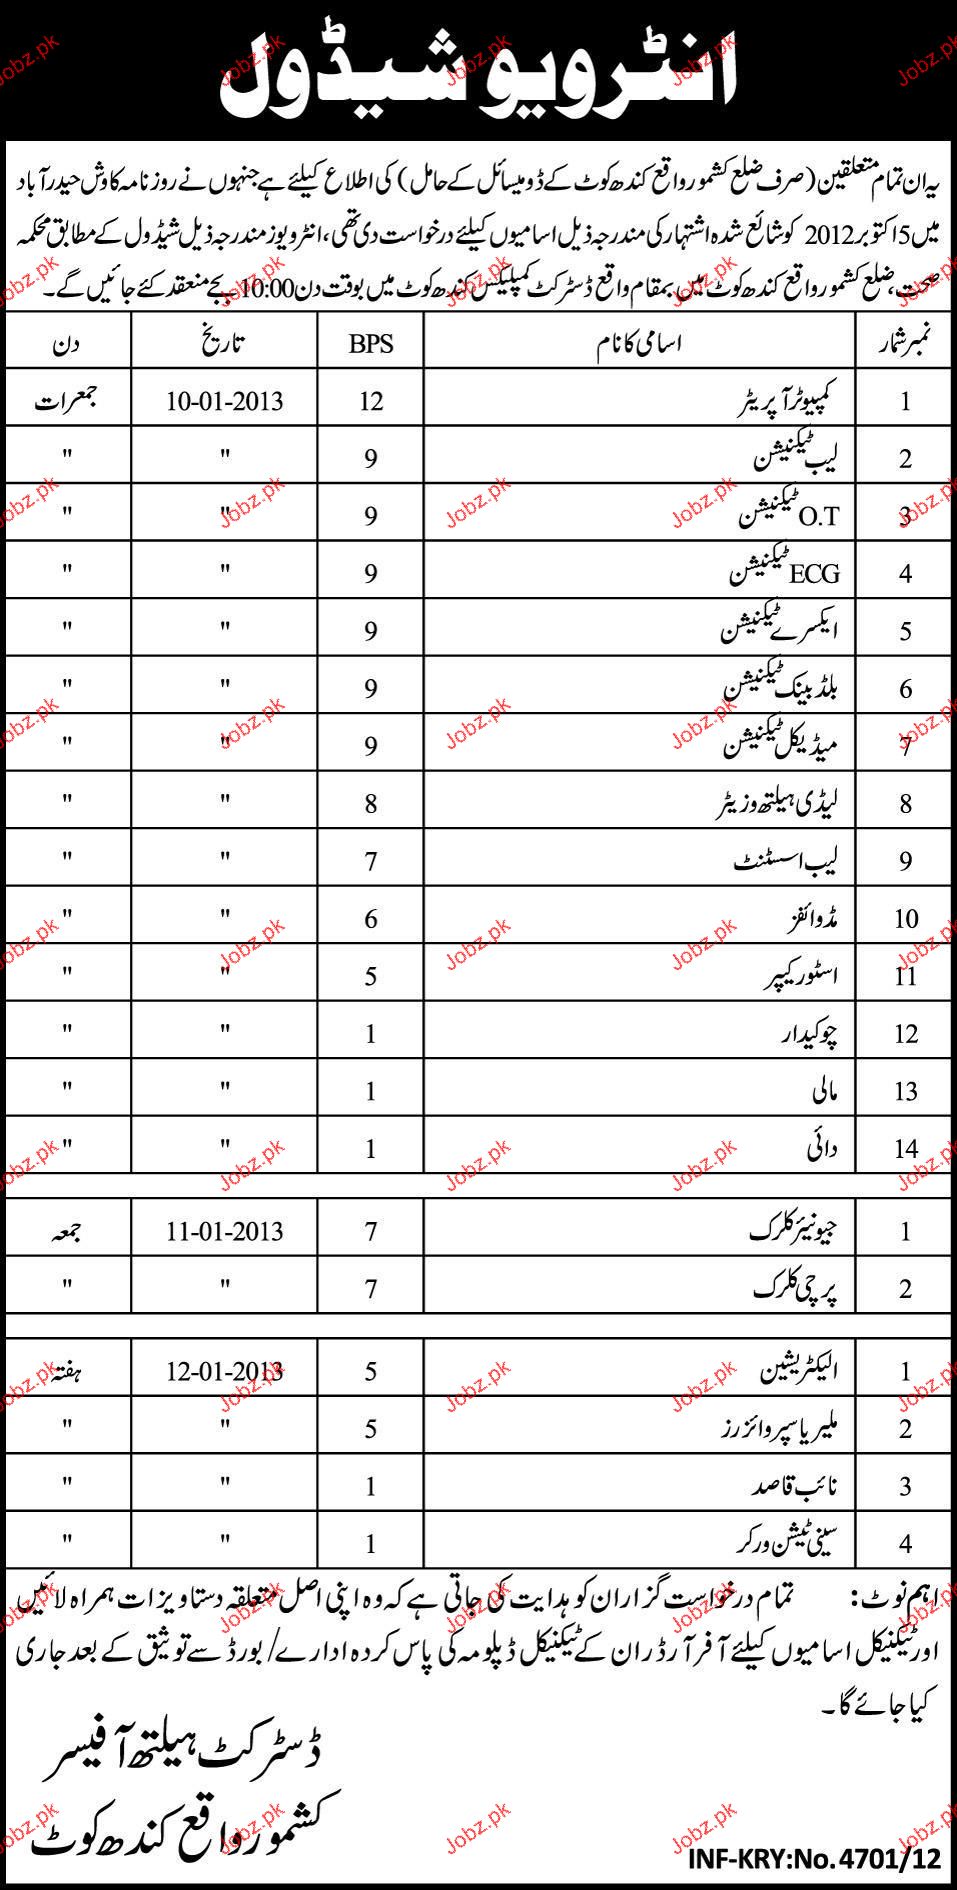 انٹرویو شیڈول
یہ ان تمام متعلقین (صرف ضلع کشمور واقع کندھ کوٹ کے ڈومیسائل کے حامل) کی اطلاع کیلئے ہے جنہوں نے روزنامہ کاوش حیدرآباد
میں 5 اکتوبر 2012 کو شائع شدہ اشتہار کی مندرجہ ذیل اسامیوں کیلئے درخواست دی تھی، انٹرویوز مندرجہ ذیل شیڈول کے مطابق محکمہ
صحت، ضلع کشمور واقع کندھ کوٹ میں بمقام واقع ڈسٹرکٹ کمپلیکس کندھ کوٹ میں بوقت دن 10:00 بجے منعقد کئے جائیں گے۔
نمبر شمار اسامی کا نام BPS تاریخ دن
1 کمپیوٹر آپریٹر 12 10-01-2013 جمعرات
2 لیب ٹیکنیشن 9 " "
3 O.T ٹیکنیشن 9 " "
4 ECG ٹیکنیشن 9 " "
5 ایکسرے ٹیکنیشن 9 " "
6 بلڈ بینک ٹیکنیشن 9 " "
7 میڈیکل ٹیکنیشن 9 " "
8 لیڈی ہیلتھ وزیٹر 8 " "
9 لیب اسسٹنٹ 7 " "
10 مڈوائفز 6 " "
11 اسٹور کیپر 5 " "
12 چوکیدار 1 " "
13 مالی 1 " "
14 دائی 1 " "
1 جیونیئر کلرک 7 11-01-2013 جمعہ
2 پرچی کلرک 7 " "
1 الیکٹریشین 5 12-01-2013 ہفتہ
2 ملیریا سپروائزرز 5 " "
3 نائب قاصد 1 " "
4 سینی ٹیشن ورکر 1 " "
اہم نوٹ: تمام درخواست گزاران کو ہدایت کی جاتی ہے کہ وہ اپنی اصل متعلقہ دستاویزات ہمراہ لائیں
اور ٹیکنیکل اسامیوں کیلئے آفر آرڈر ان کے ٹیکنیکل ڈپلومہ کی پاس کردہ ادارے/بورڈ سے توثیق کے بعد جاری
کیا جائے گا۔
ڈسٹرکٹ ہیلتھ آفیسر
کشمور واقع کندھ کوٹ
INF-KRY:No.4701/12
Jobz.pk